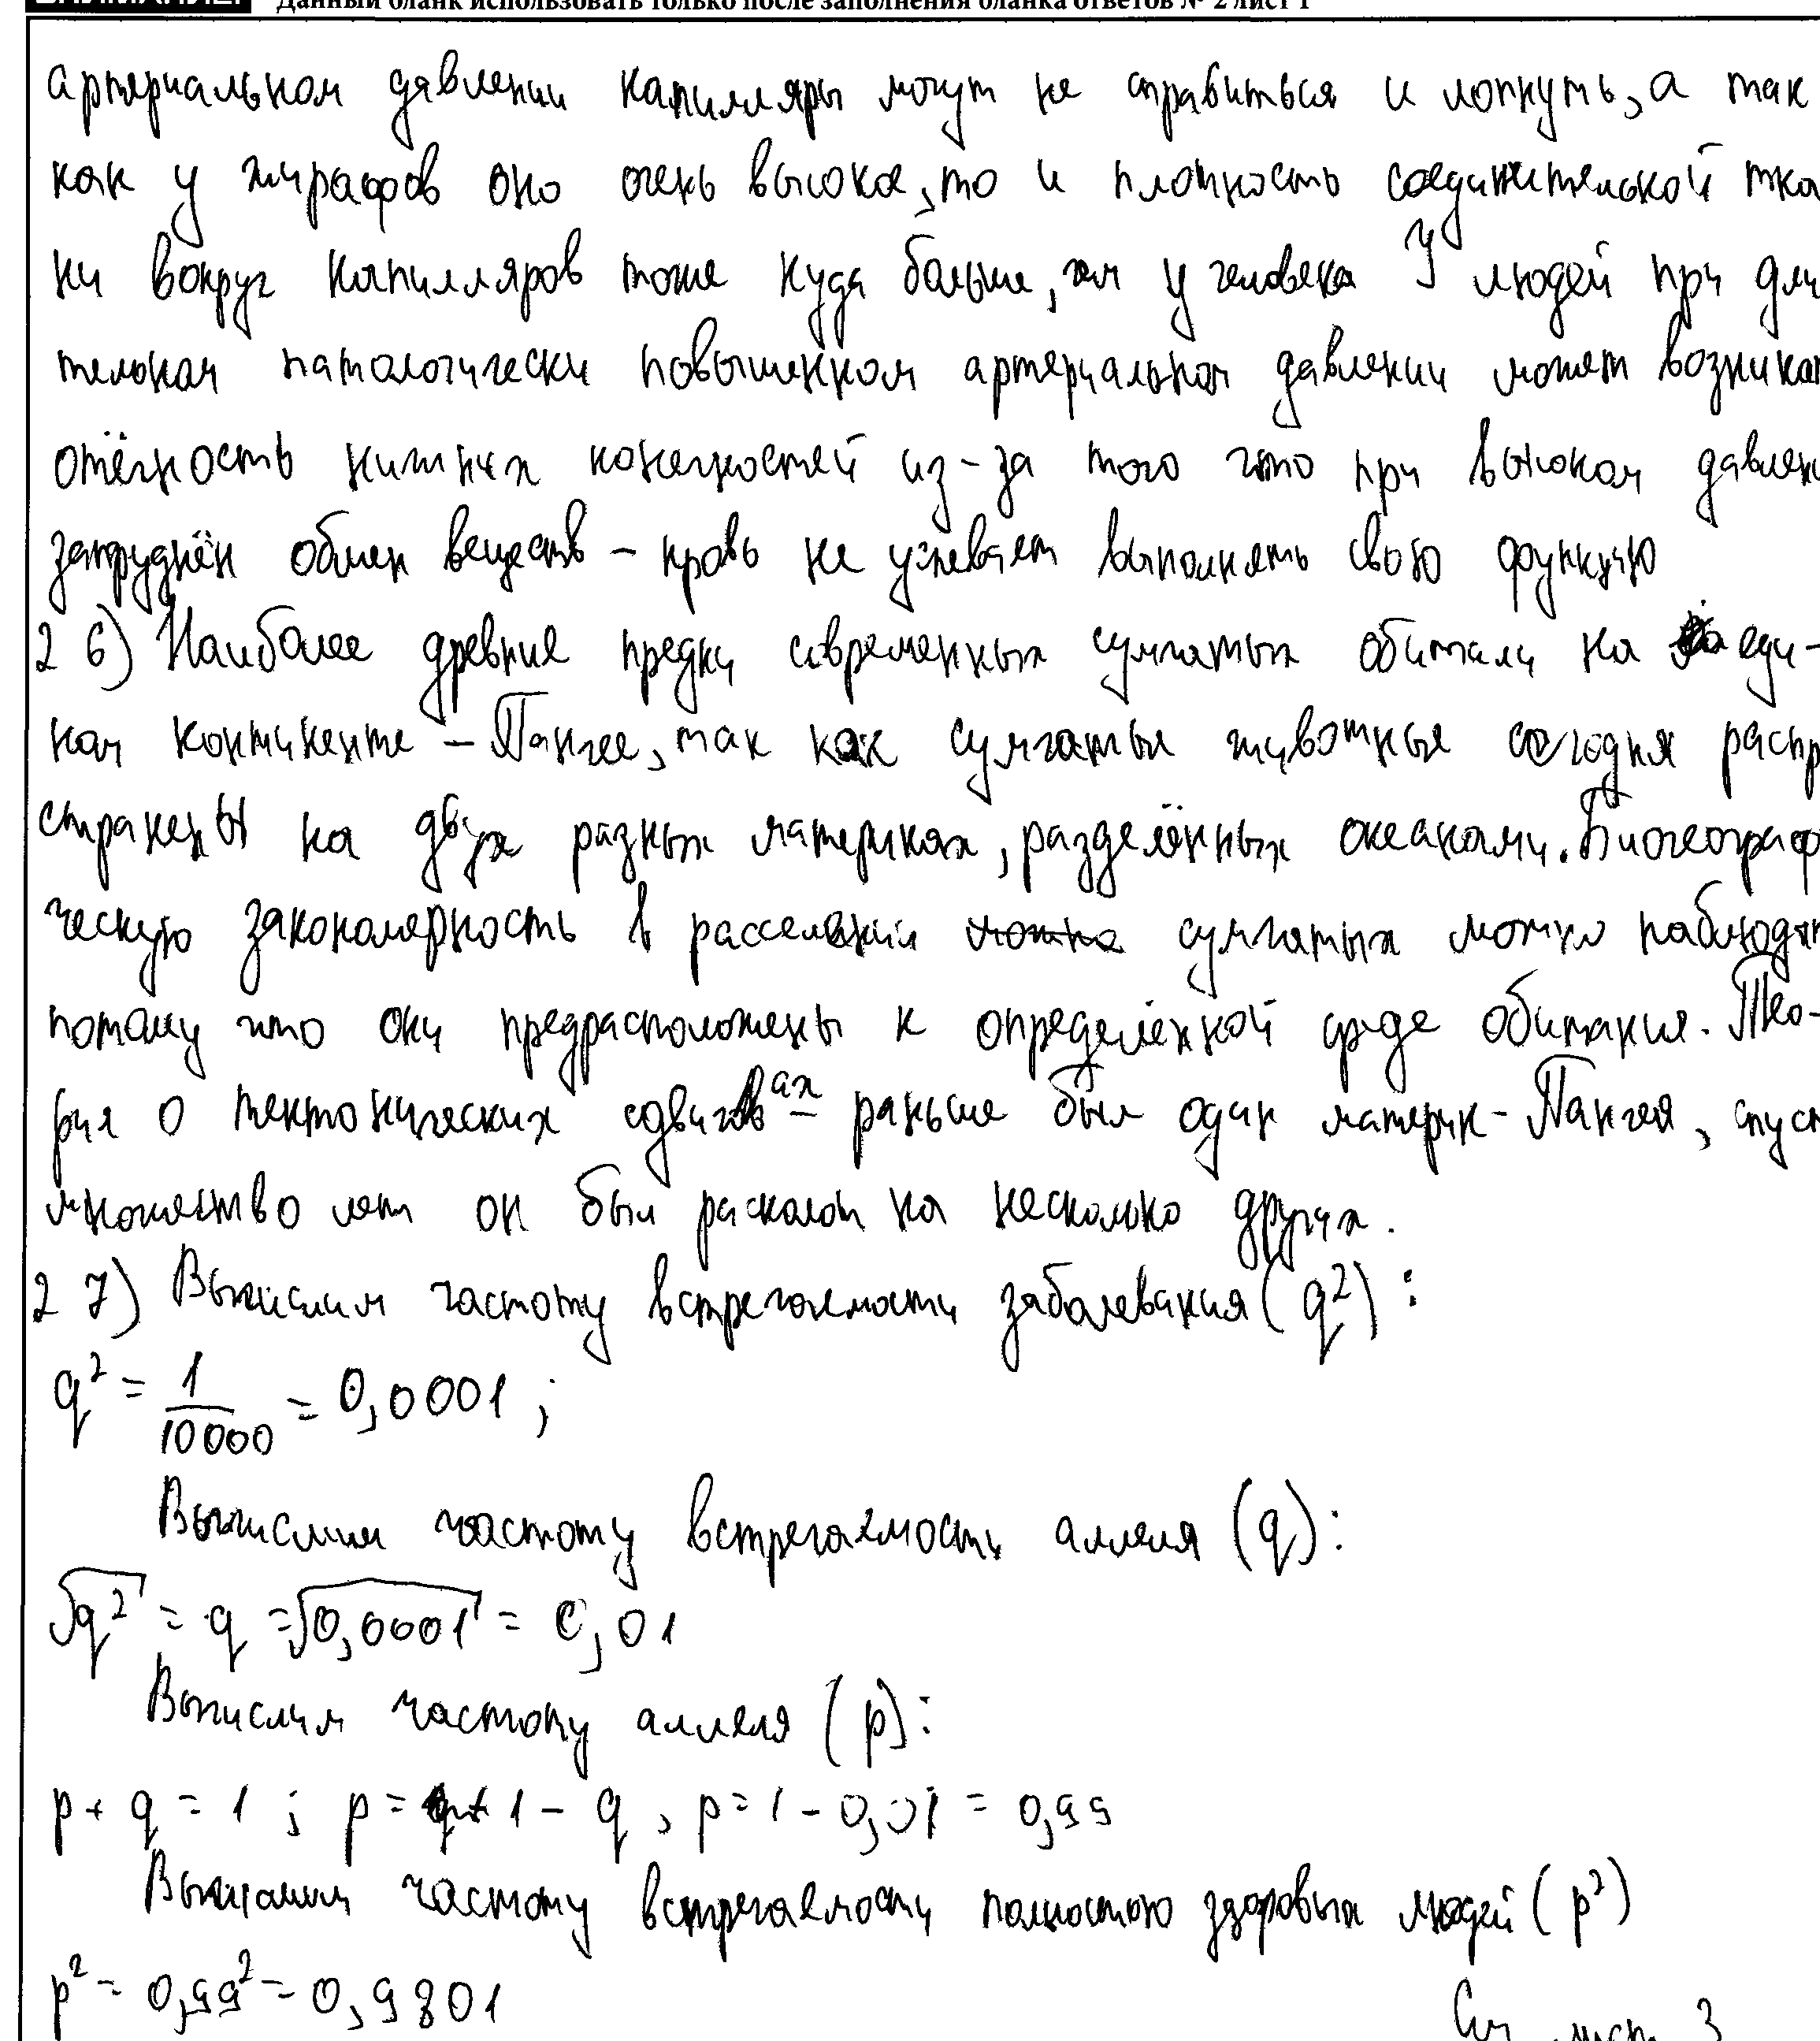 Данный бланк использовать только после заполнения бланка ответов № 2 лист 1
артериальном давлении капилляры могут не справиться и лопнуть, а так
как у жирафов оно очень высокое, то и плотность соединительной тка
ни вокруг капилляров тоже куда больше, чем у человека У людей при дли
тельном патологически повышенном артериальном давлении может возникат
отёчность нижних конечностей из-за того что при высоком давлен
затруднён обмен веществ - кровь не успевает выполнять свою функцию
26) Наиболее древние предки современных сумчатых обитали на еди-
ном континенте - Пангее, так как сумчатые животные сегодня распр
странены на двух разных материках, разделённых океанами. Биогеограф
ческую закономерность в расселении сумчатых можно наблюдат
потому что они предрасположены к определённой среде обитания. Тео-
рия о тектонических сдвигах - раньше был один материк - Пангея, спуст
множество лет он был расколот на несколько других.
27) Вычислим частоту встречаемости заболевания (q²):
q² = 1/10000 = 0,0001;
Вычислим частоту встречаемость аллеля (q):
√q² = q = √0,0001 = 0,01
Вычислим частоту аллеля (p):
p + q = 1; p = 1 - q, p = 1 - 0,01 = 0,99
Вычислим частоту встречаемости полностью здоровых людей (p²)
p² = 0,99² = 0,9801
См лист 3